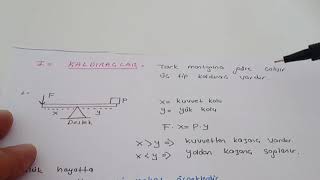 I = KALDIRAÇLAR =
Tork mantığına göre çalışır
üç tip kaldıraç vardır.
F
P
x y
Destek
x = kuvvet kolu
y = yük kolu
F . x = P . y
x > y ⇒ kuvvetten kazanç vardır.
x < y ⇒ yoldan kazanç sağlanır.
hayatta